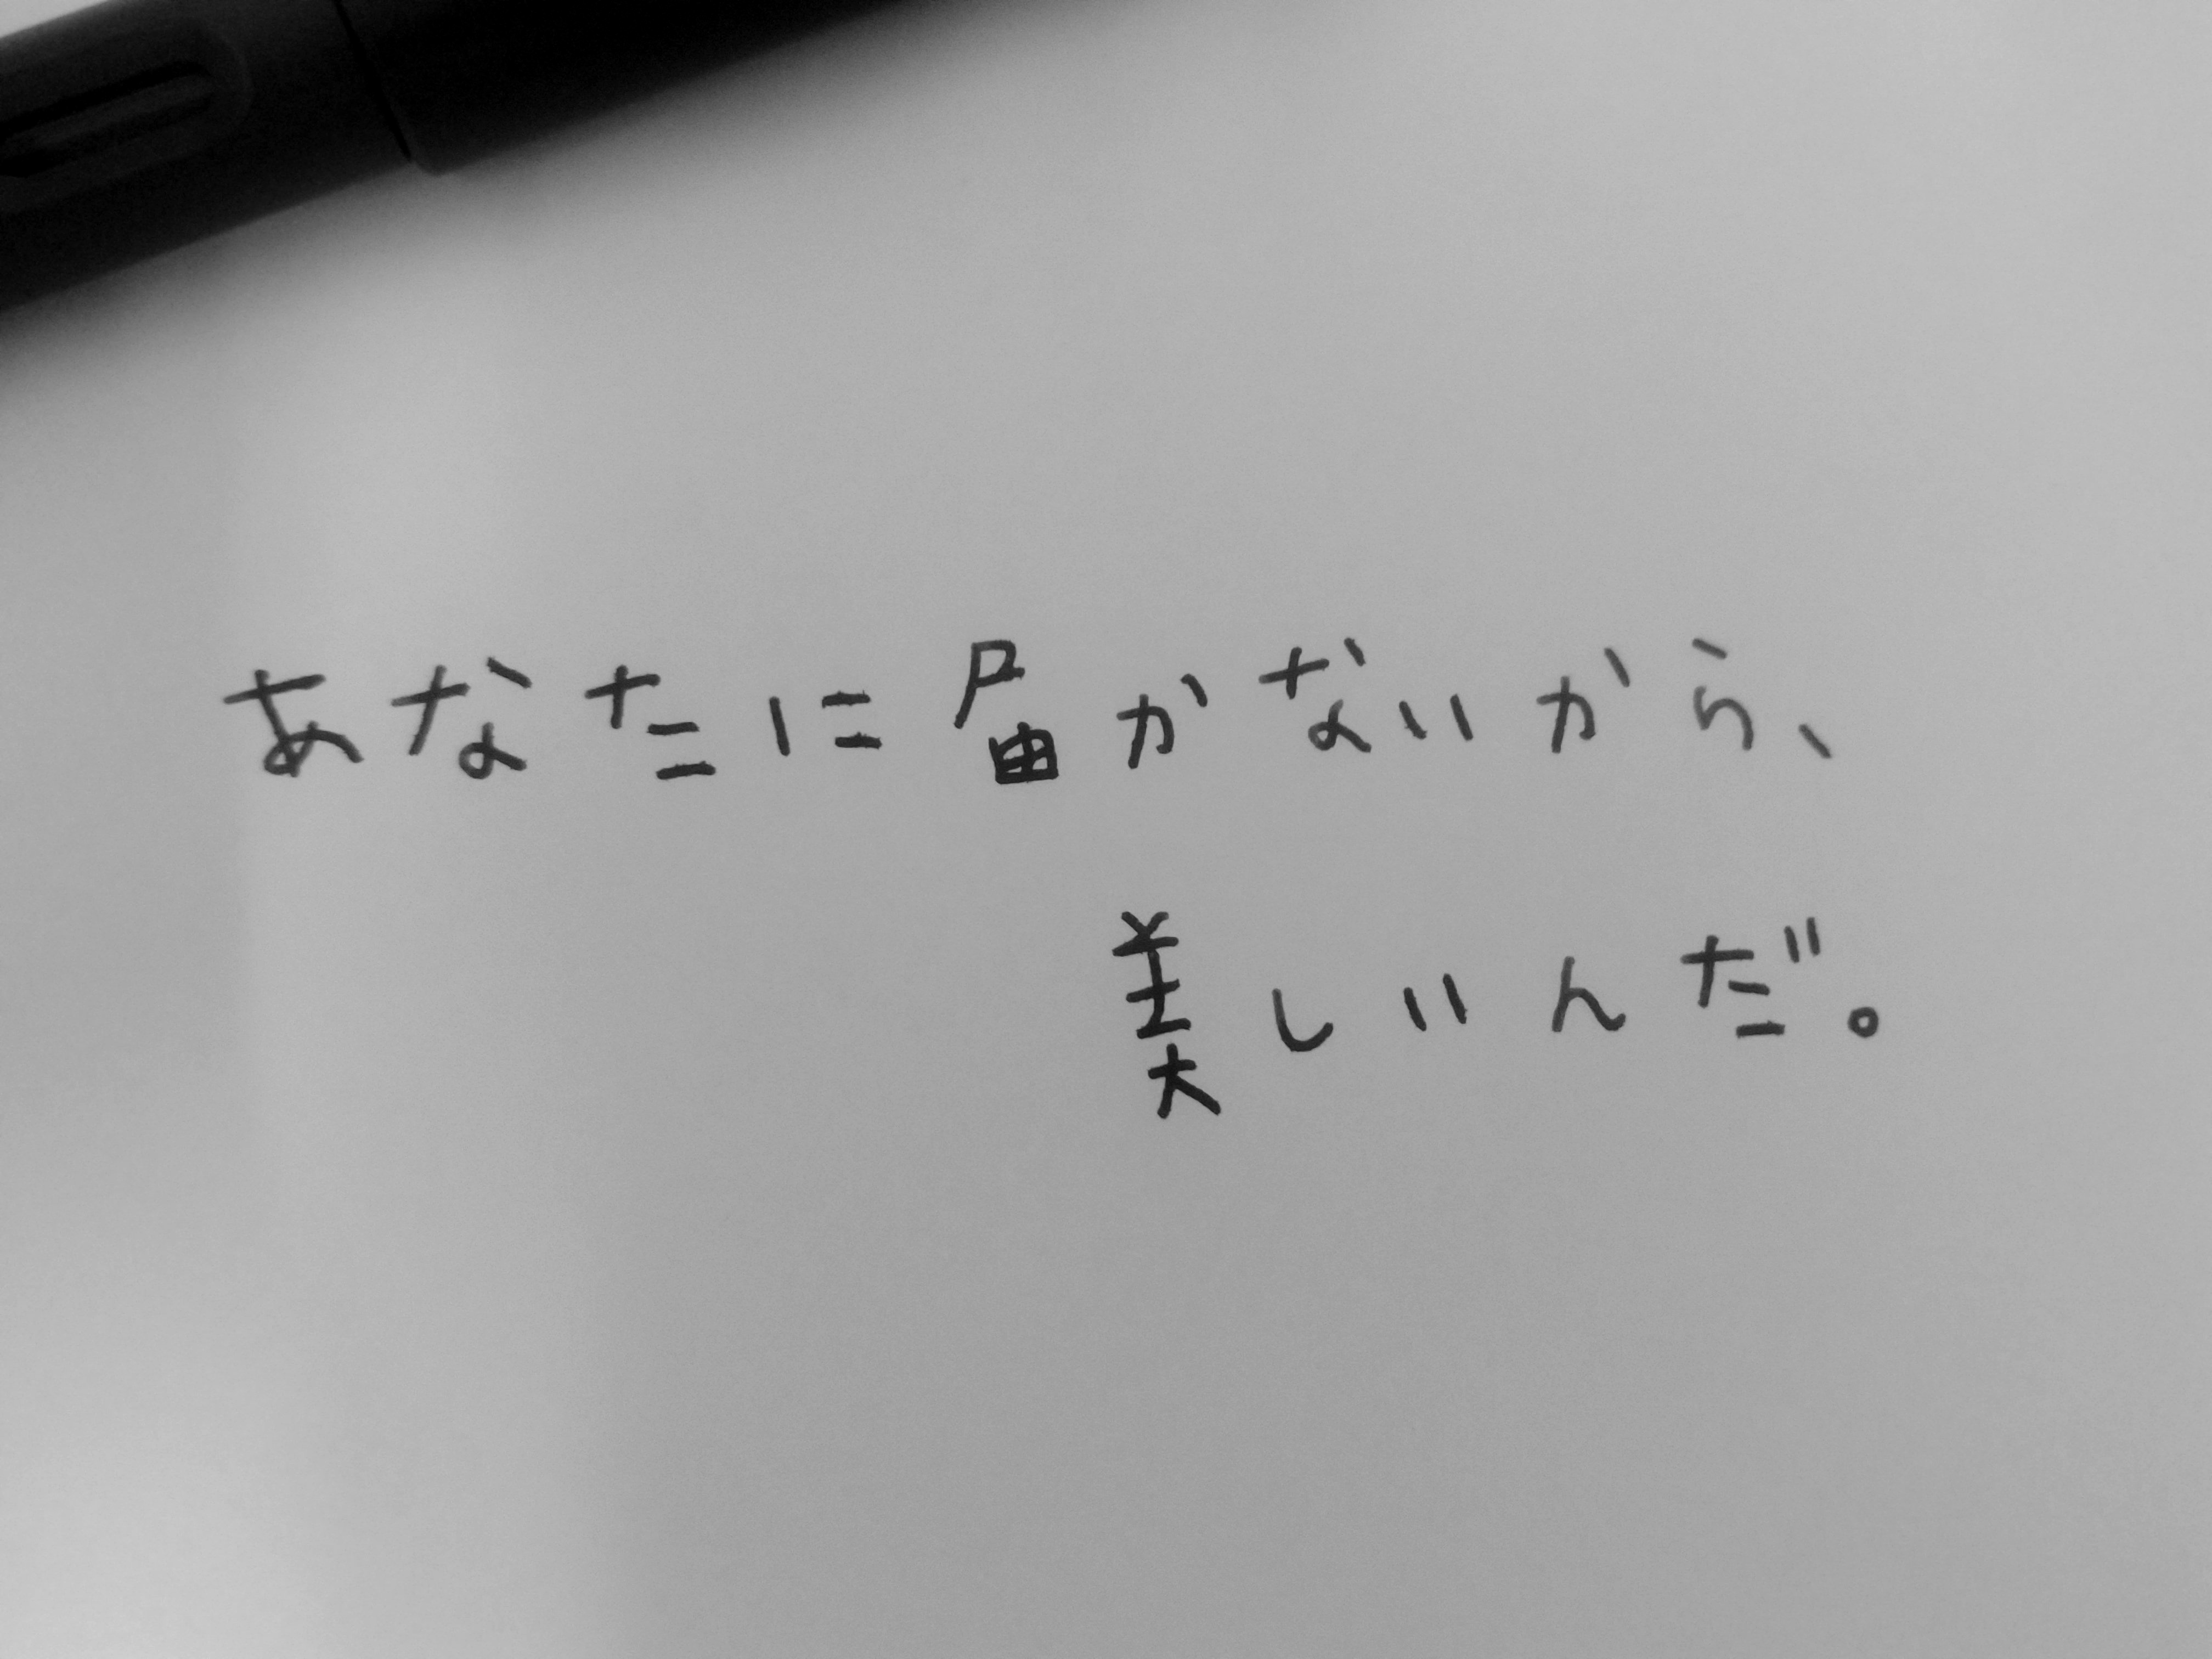 あなたに届かないから、
美しいんだ。